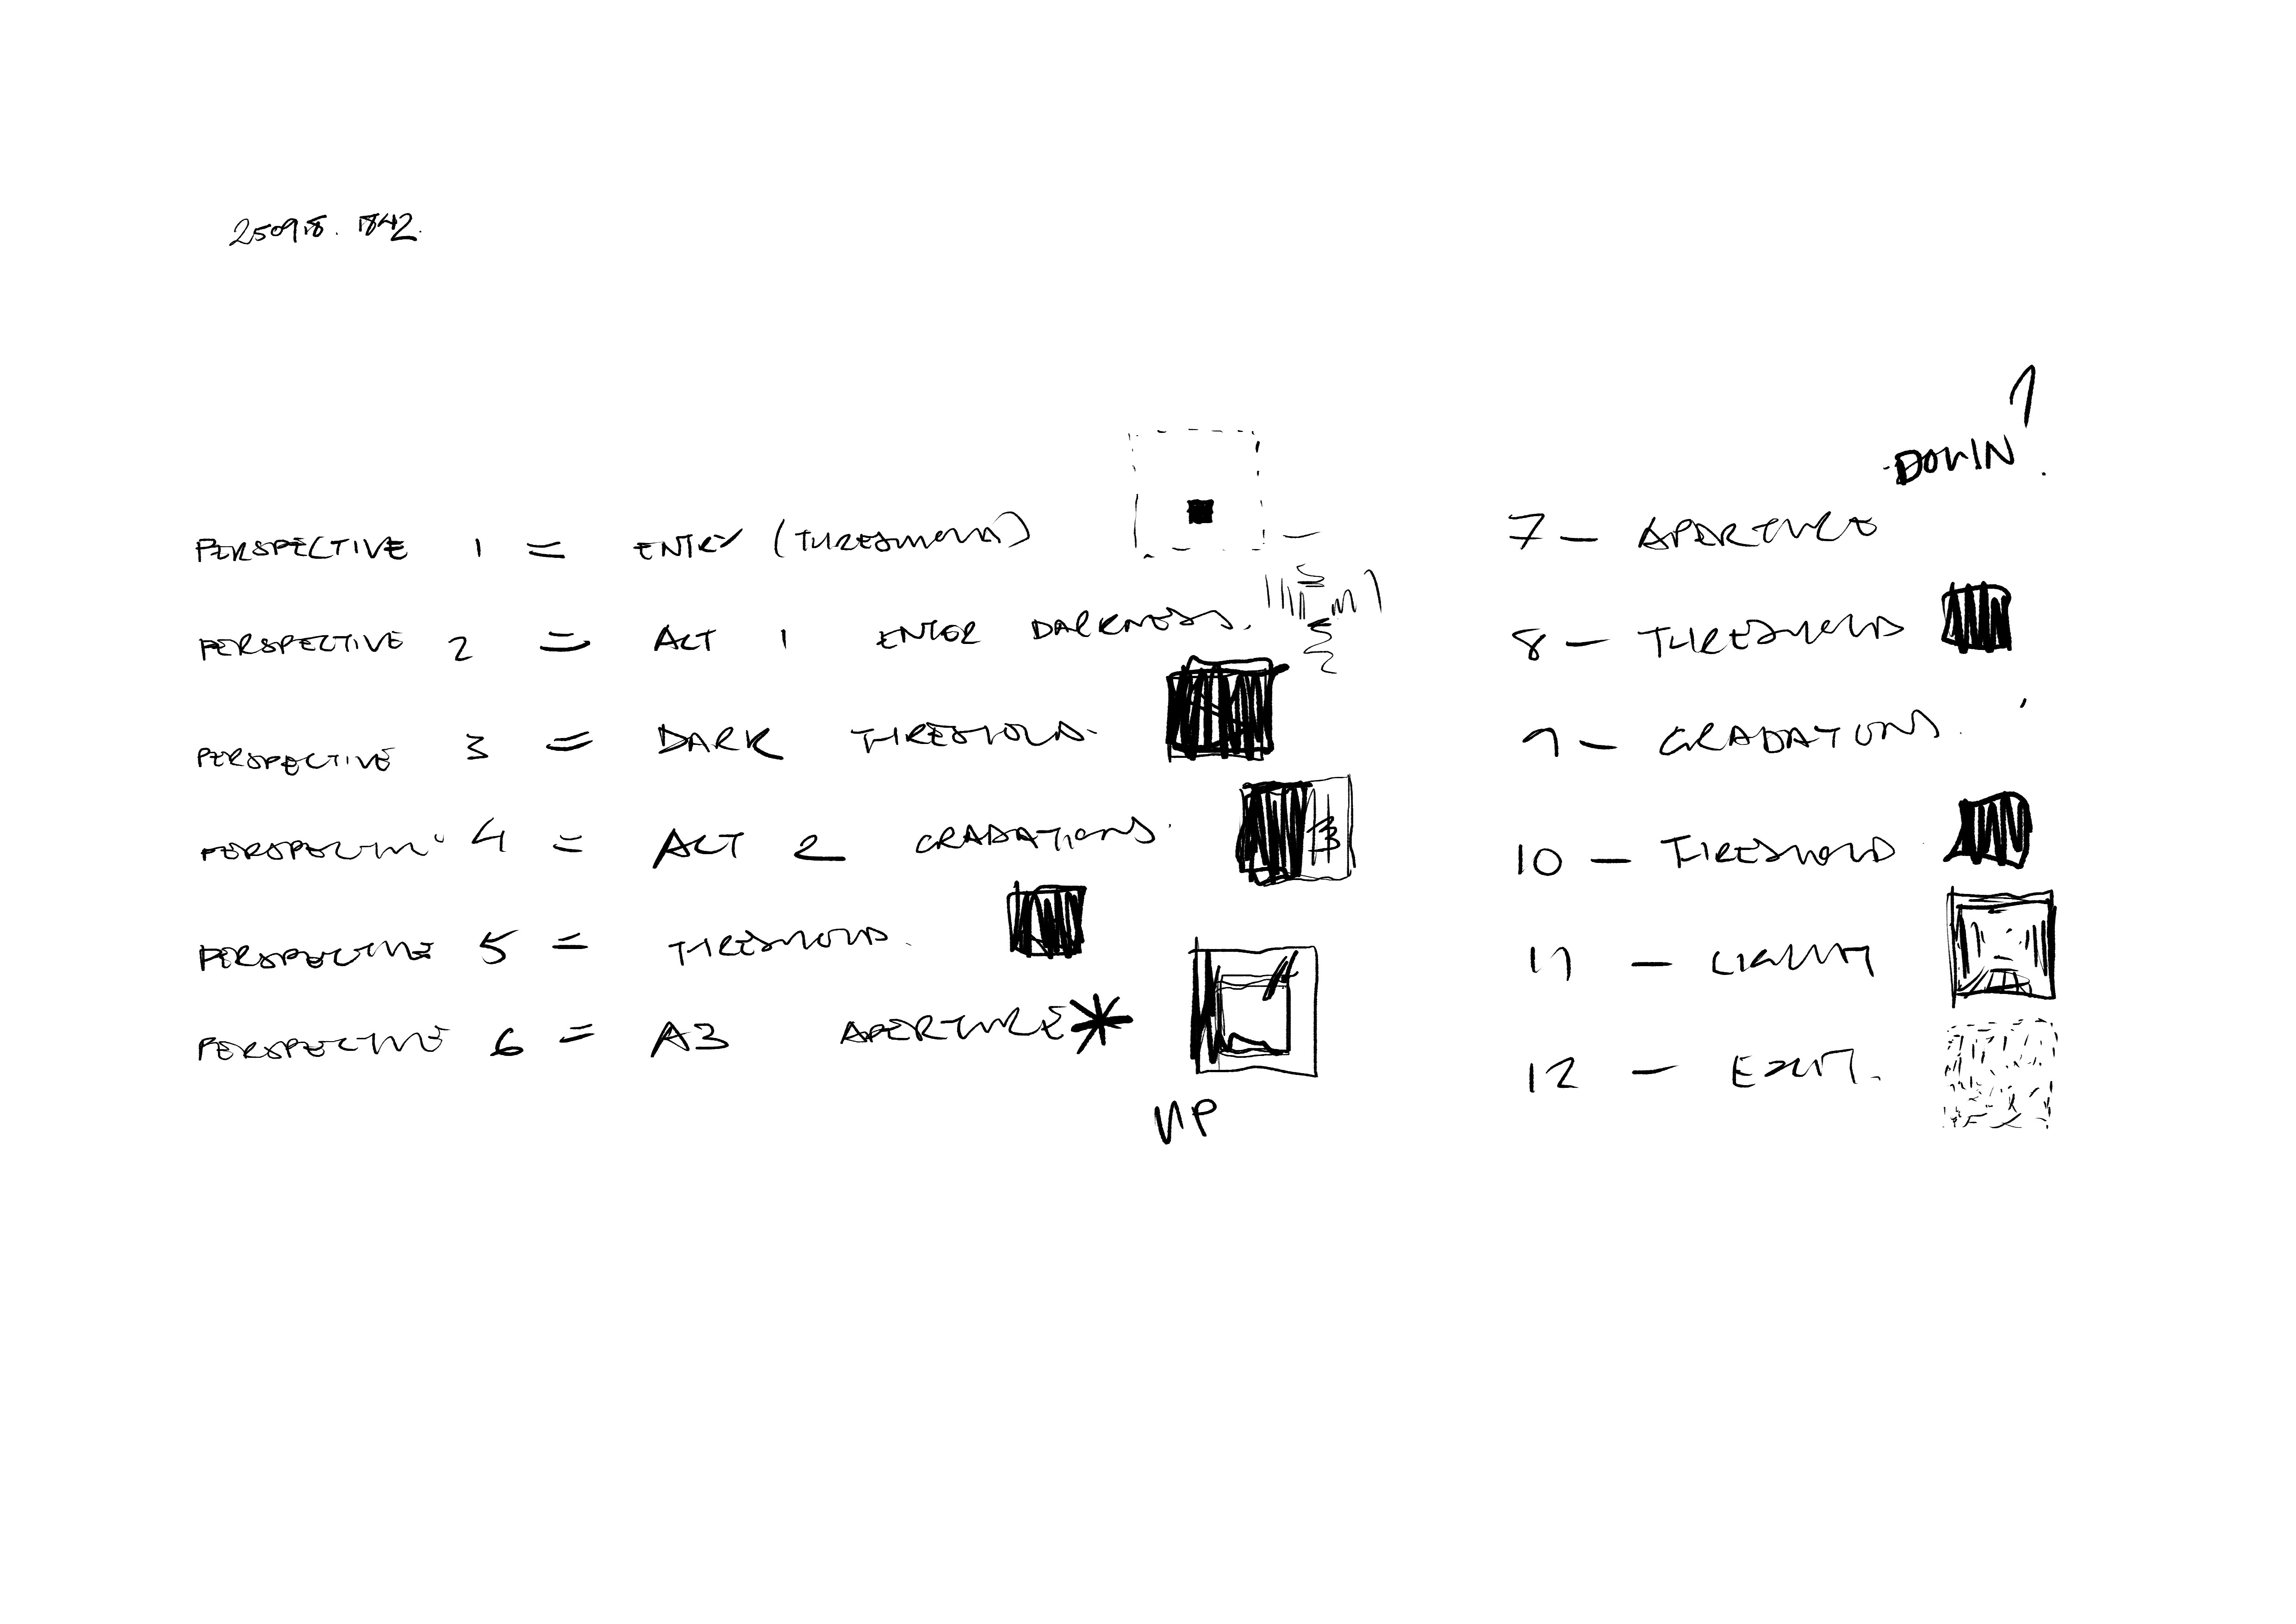 250918. 1842.
PERSPECTIVE 1 = ENTRY (THRESHOLD)
PERSPECTIVE 2 = ACT 1 ENTER DARKNESS.
PERSPECTIVE 3 = DARK THRESHOLD.
PERSPECTIVE 4 = ACT 2 GRADATIONS.
PERSPECTIVE 5 = THRESHOLD.
PERSPECTIVE 6 = A3 APERTURE*
UP
DOWN?
7 - APERTURE
8 - THRESHOLD
9 - GRADATIONS.
10 - THRESHOLD
11 - LIGHT
12 - EXIT.